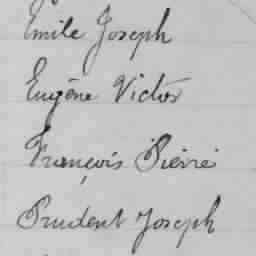 Emile Joseph
Eugène Victor
François Pierre
Prudent Joseph